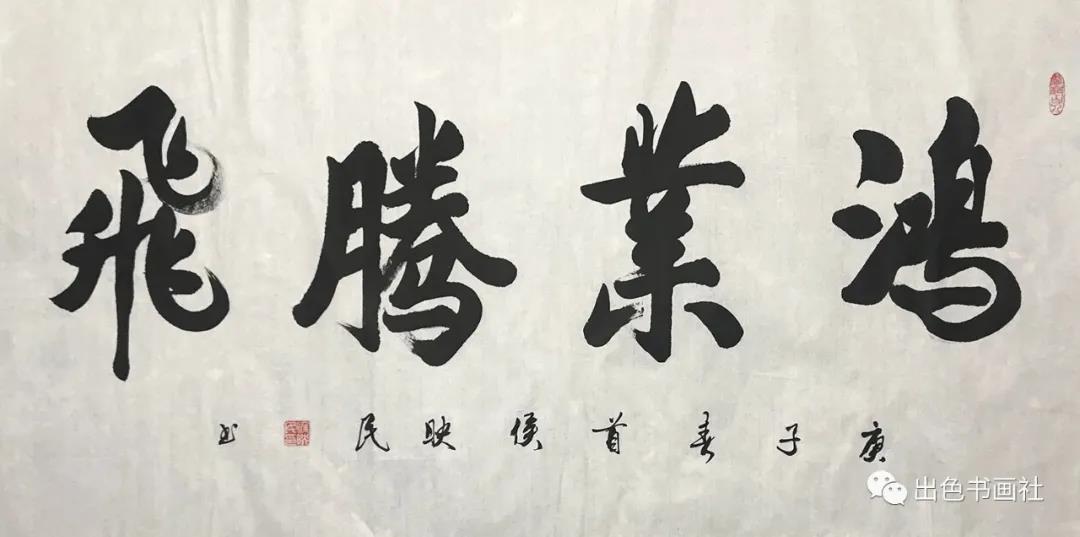 鴻業騰飛
庚子春首侯映民书
出色书画社